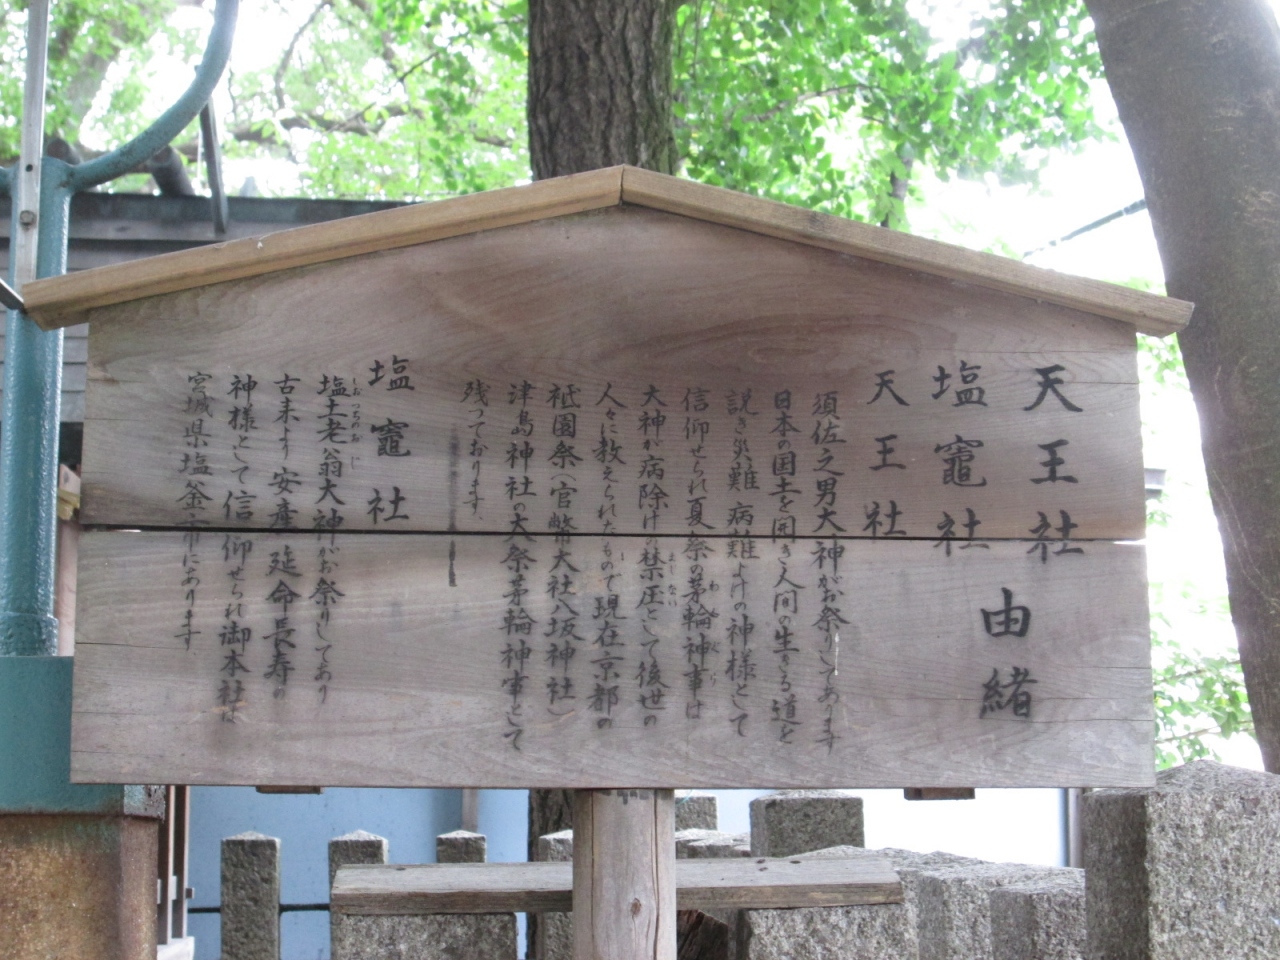 天王社
塩竈社
由緒
天王社
須佐之男大神がお祭りしてあります
日本の国土を開き人間の生きる道を
説き災難病難よけの神様として
信仰せられ夏祭の茅輪神事は
大神が病除けの禁圧として後世の
人々に教えられたもので現在京都の
祇園祭(官幣大社八坂神社)
津島神社の大祭茅輪神事として
残つております、
塩竈社
塩土老翁大神がお祭りしてあり
古来より安産延命長寿の
神様として信仰せられ御本社は
宮城県塩釜市にあります